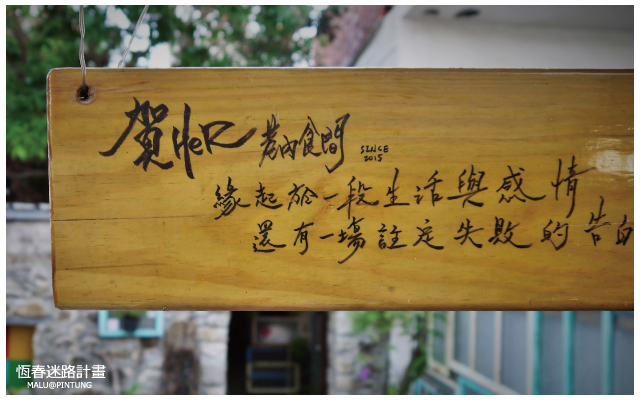 賀HeR 老內食間
SINCE
2015
緣起於一段生活與感情
還有一場註定失敗的告白
恆春迷路計畫
MALU@PINTUNG